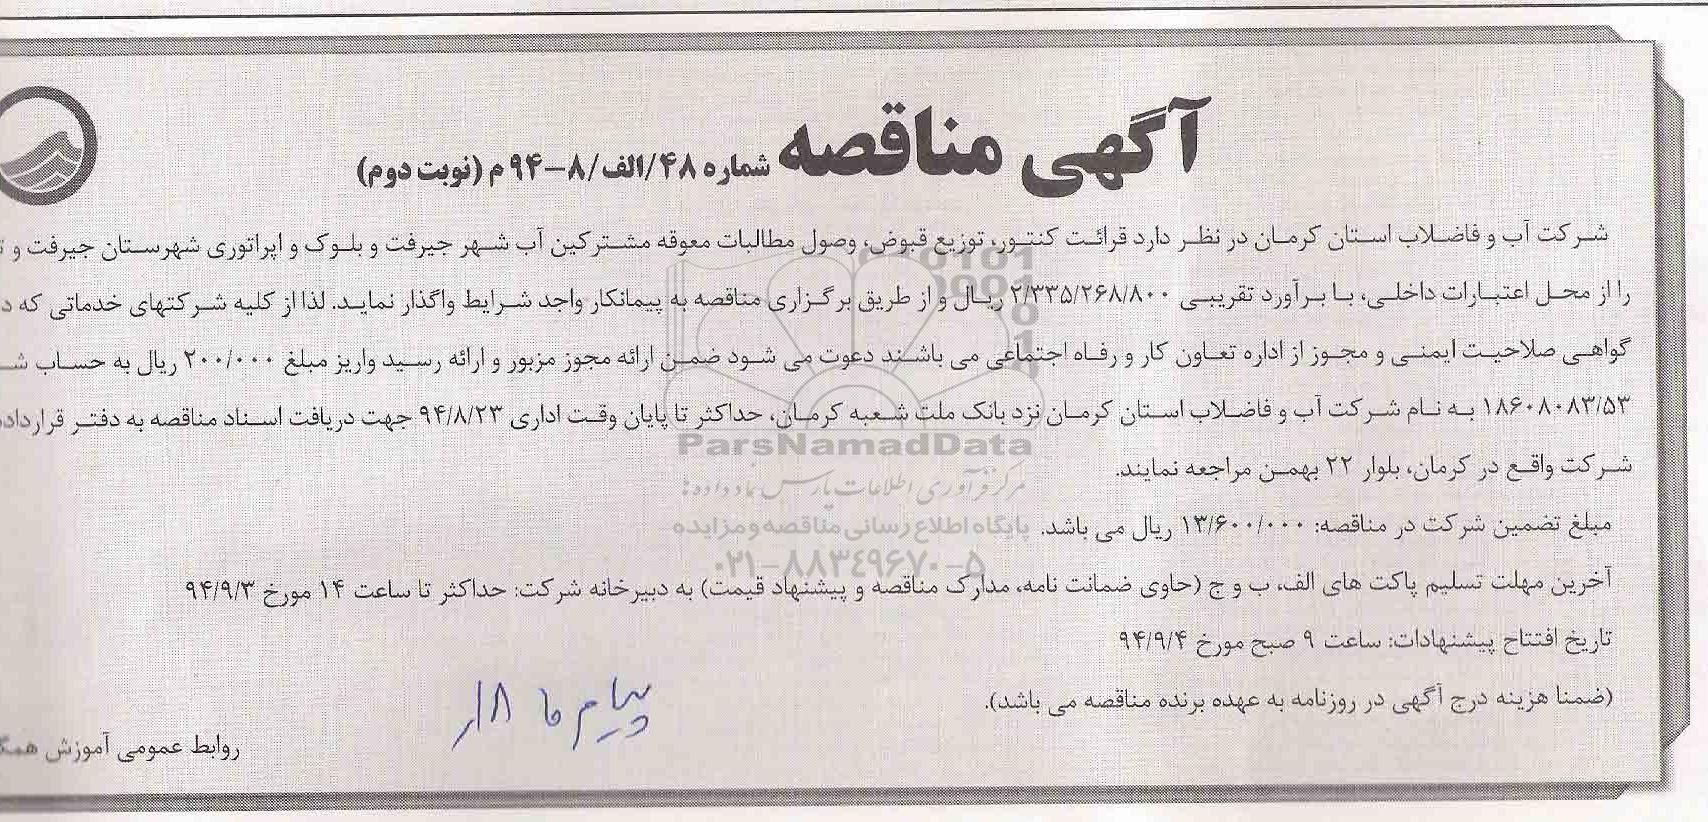 آگهی مناقصه شماره ۴۸/الف/۸-۹۴ م (نوبت دوم)
شرکت آب و فاضلاب استان کرمان در نظر دارد قرائت کنتور، توزیع قبوض، وصول مطالبات معوقه مشترکین آب شهر جیرفت و بلوک و اپراتوری شهرستان جیرفت و
را از محل اعتبارات داخلی، با برآورد تقریبی ۲/۳۳۵/۲۶۸/۸۰۰ ریال و از طریق برگزاری مناقصه به پیمانکار واجد شرایط واگذار نماید. لذا از کلیه شرکتهای خدماتی که
گواهی صلاحیت ایمنی و مجوز از اداره تعاون کار و رفاه اجتماعی می باشند دعوت می شود ضمن ارائه مجوز مزبور و ارائه رسید واریز مبلغ ۲۰۰/۰۰۰ ریال به حساب
۱۸۶۰۸۰۸۳/۵۳ به نام شرکت آب و فاضلاب استان کرمان نزد بانک ملت شعبه کرمان، حداکثر تا پایان وقت اداری ۹۴/۸/۲۳ جهت دریافت اسناد مناقصه به دفتر
شرکت واقع در کرمان، بلوار ۲۲ بهمن مراجعه نمایند.
مبلغ تضمین شرکت در مناقصه: ۱۳/۶۰۰/۰۰۰ ریال می باشد.
آخرین مهلت تسلیم پاکت های الف، ب و ج (حاوی ضمانت نامه، مدارک مناقصه و پیشنهاد قیمت) به دبیرخانه شرکت: حداکثر تا ساعت ۱۴ مورخ ۹۴/۹/۳
تاریخ افتتاح پیشنهادات: ساعت ۹ صبح مورخ ۹۴/۹/۴
(ضمنا هزینه درج آگهی در روزنامه به عهده برنده مناقصه می باشد).
روابط عمومی آموزش
ParsNamadData
مرکز فرآوری اطلاعات پارس نماد داده ها
پایگاه اطلاع رسانی مناقصه و مزایده
۰۲۱-۸۸۳۴۹۶۷۰-۵